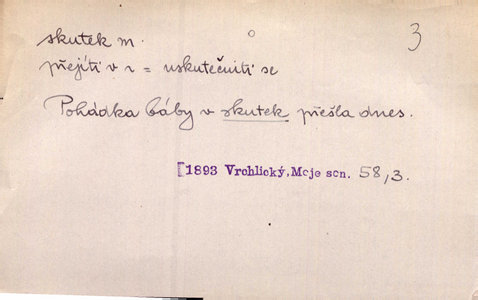 skutek m.
3
přejíti v s = uskutečniti se
Pohádka báby v skutek přešla dnes.
[1893 Vrchlický, Moje son. 58,3.